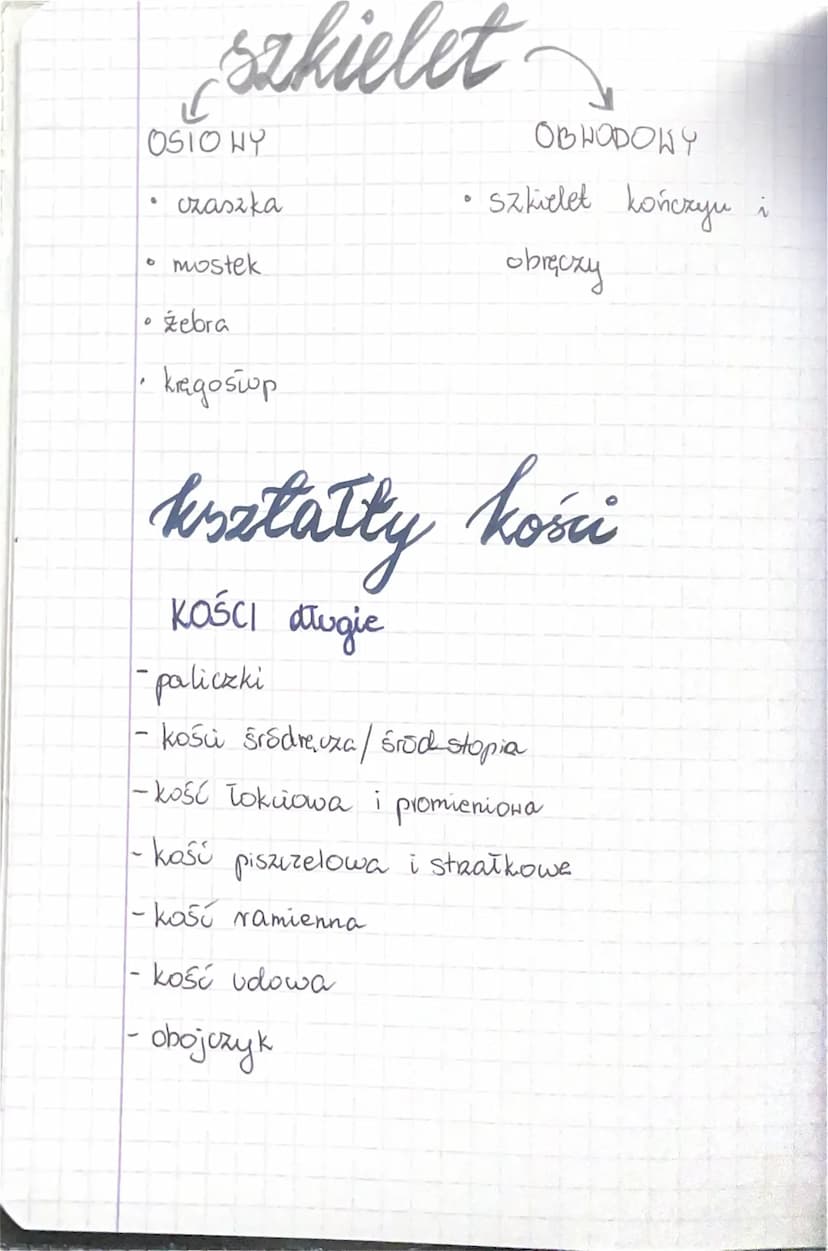 szkielet
OSIOWY OBWODOWY
• czaszka • szkielet kończyn i
• mostek obręczy
• żebra
• kręgosłup
kształty kości
KOŚCI długie
- paliczki
- kości śródręcza/śródstopia
- kość łokciowa i promieniowa
- kość piszczelowa i strzałkowe
- kość ramienna
- kość udowa
- obojczyk